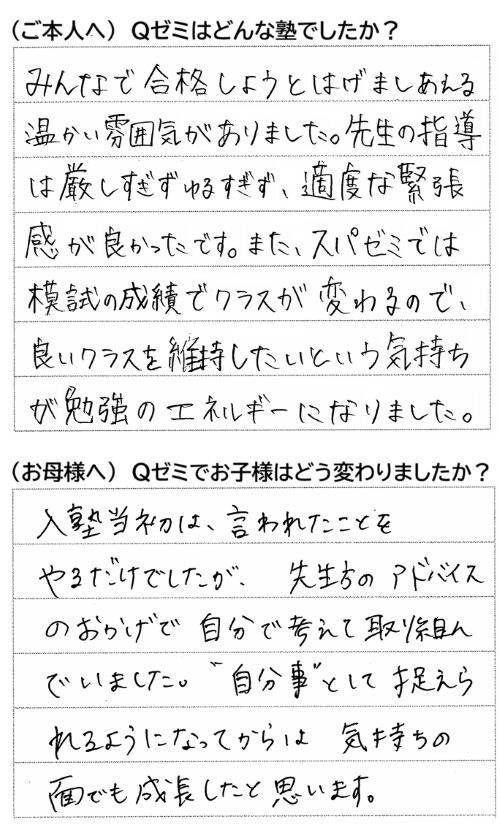 (ご本人へ) Qゼミはどんな塾でしたか?
みんなで合格しようとはげましあえる
温かい雰囲気がありました。先生の指導
は厳しすぎずゆるすぎず、適度な緊張
感が良かったです。また、スパゼミでは
模試の成績でクラスが変わるので、
良いクラスを維持したいという気持ち
が勉強のエネルギーになりました。
(お母様へ) Qゼミでお子様はどう変わりましたか?
入塾当初は、言われたことを
やるだけでしたが、先生方のアドバイス
のおかげで自分で考えて取り組ん
でいました。"自分事"として捉えら
れるようになってからは 気持ちの
面でも成長したと思います。